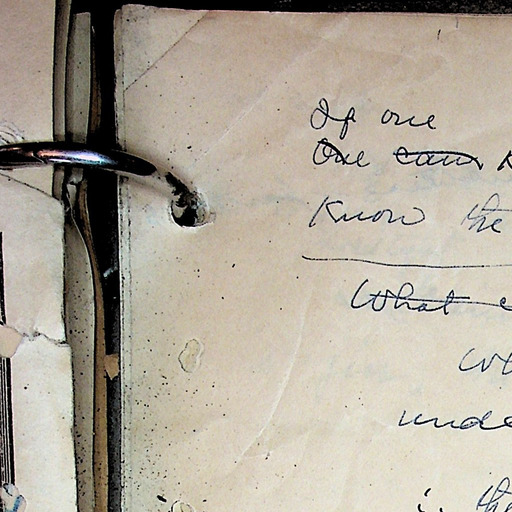 If one
One can K
Know the
What
unde
in the